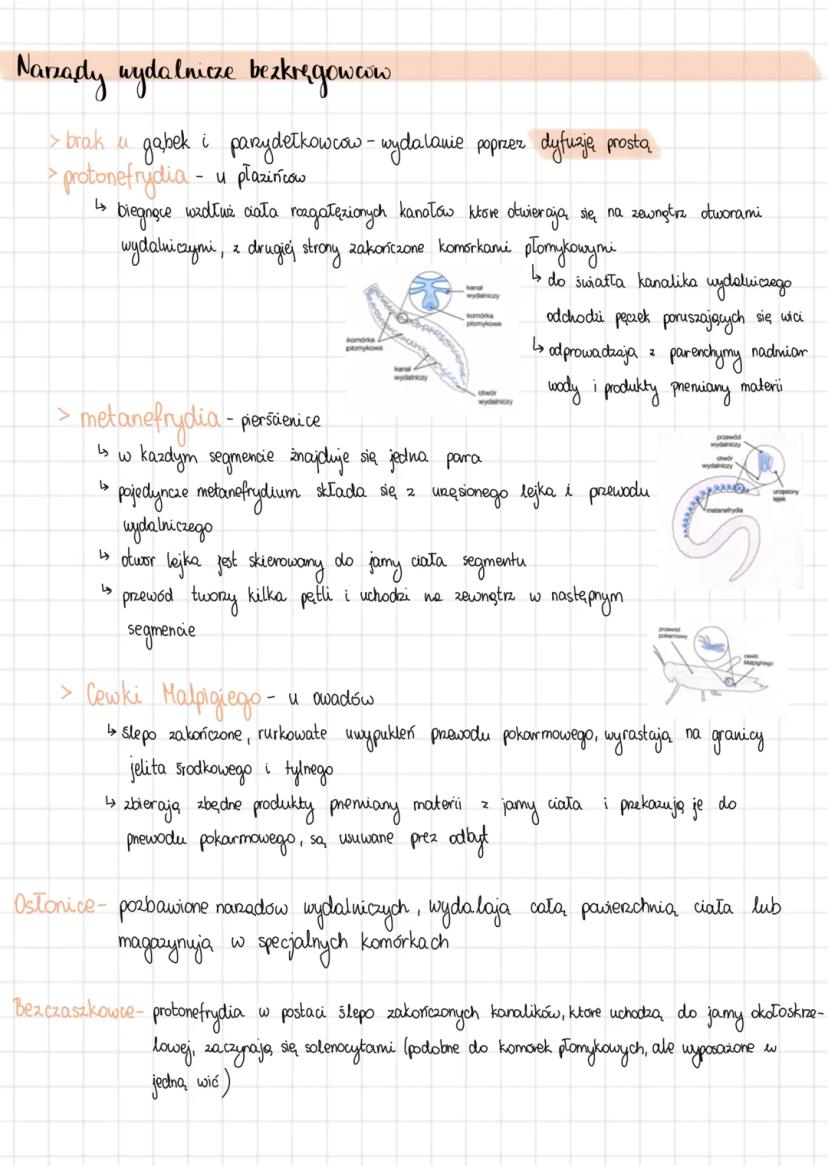 Narządy wydalnicze bezkręgowców
> brak u gąbek i parzydełkowców - wydalanie poprzez dyfuzję prostą
> protonefrydia - u płazińców
↳ biegnące wzdłuż ciała rozgałęzionych kanałów które otwierają się na zewnątrz otworami
wydalniczymi, z drugiej strony zakończone komórkami płomykowymi
↳ do światła kanalika wydalniczego
odchodzi pęczek poruszających się wici
↳ odprowadzają z parenchymy nadmiar
wody i produkty przemiany materii
kanał
wydalniczy
komórka
płomykowa
komórka
płomykowa
kanał
wydalniczy
otwór
wydalniczy
> metanefrydia - pierścienice
↳ w każdym segmencie znajduje się jedna para
↳ pojedyncze metanefrydium składa się z urzęsionego lejka i przewodu
wydalniczego
↳ otwór lejka jest skierowany do jamy ciała segmentu
↳ przewód tworzy kilka pętli i uchodzi na zewnątrz w następnym
segmencie
przewód
wydalniczy
otwór
wydalniczy
urzęsiony
lejek
metanefrydia
przewód
pokarmowy
cewki
Malpighiego
> Cewki Malpigiego - u owadów
↳ ślepo zakończone, rurkowate uwypukleń przewodu pokarmowego, wyrastają na granicy
jelita środkowego i tylnego
↳ zbierają zbędne produkty przemiany materii z jamy ciała i przekazują je do
przewodu pokarmowego, są usuwane prez odbyt
Osłonice - pozbawione narządów wydalniczych, wydalają całą powierzchnią ciała lub
magazynują w specjalnych komórkach
Bezczaszkowce - protonefrydia w postaci ślepo zakończonych kanalików, które uchodzą do jamy okołoskrze-
lowej, zaczynają się solenocytami (podobne do komórek płomykowych, ale wyposażone w
jedną wić)